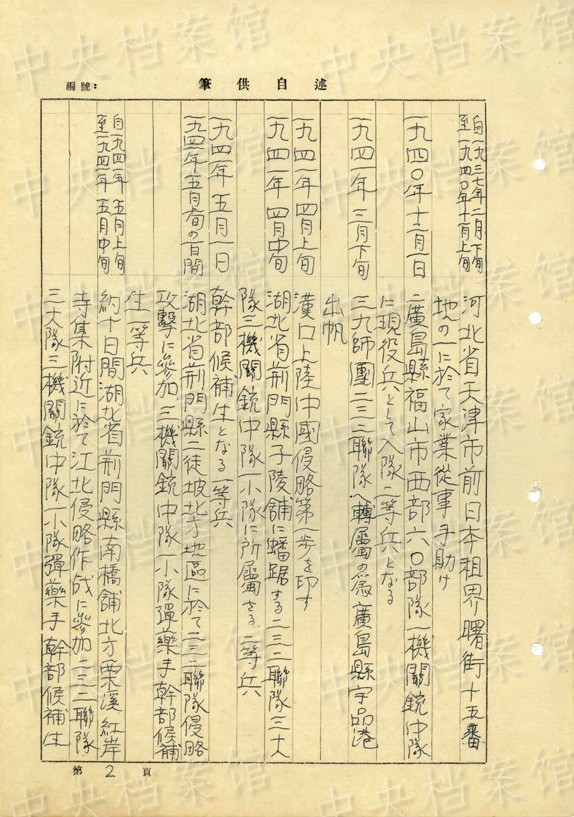 編號：
筆供自述
自一九三七年二月下旬
至一九四〇年十一月上旬
河北省天津市前日本租界曙街十五番
地の一に於て家業從事手助け
一九四〇年十二月一日
廣島縣福山市西部六〇部隊一機關銃中隊
に現役兵として入隊二等兵となる
一九四一年三月下旬
三九師團二三二聯隊へ轉屬の為廣島縣宇品港
出帆
一九四一年四月上旬
漢口上陸中國侵略第一步を印す
一九四一年四月中旬
湖北省荊門縣子陵舖に蟠踞する二三二聯隊三大
隊三機關銃中隊一小隊に所屬さる二等兵
一九四一年五月一日
幹部候補生となる一等兵
一九四一年五月旬の日間
湖北省荊門縣二徒坡北方地區に於て二三二聯隊侵略
攻擊に參加三機關銃中隊一小隊彈藥手幹部候補
生一等兵
自一九四一年五月上旬
至一九四一年五月中旬
約十日間湖北省荊門縣南橋舖北方栗溪紅岸
寺集附近に於て江北侵略作戰に參加二三二聯隊
三大隊三機關銃中隊一小隊彈藥手幹部候補生
第2頁
中央档案馆